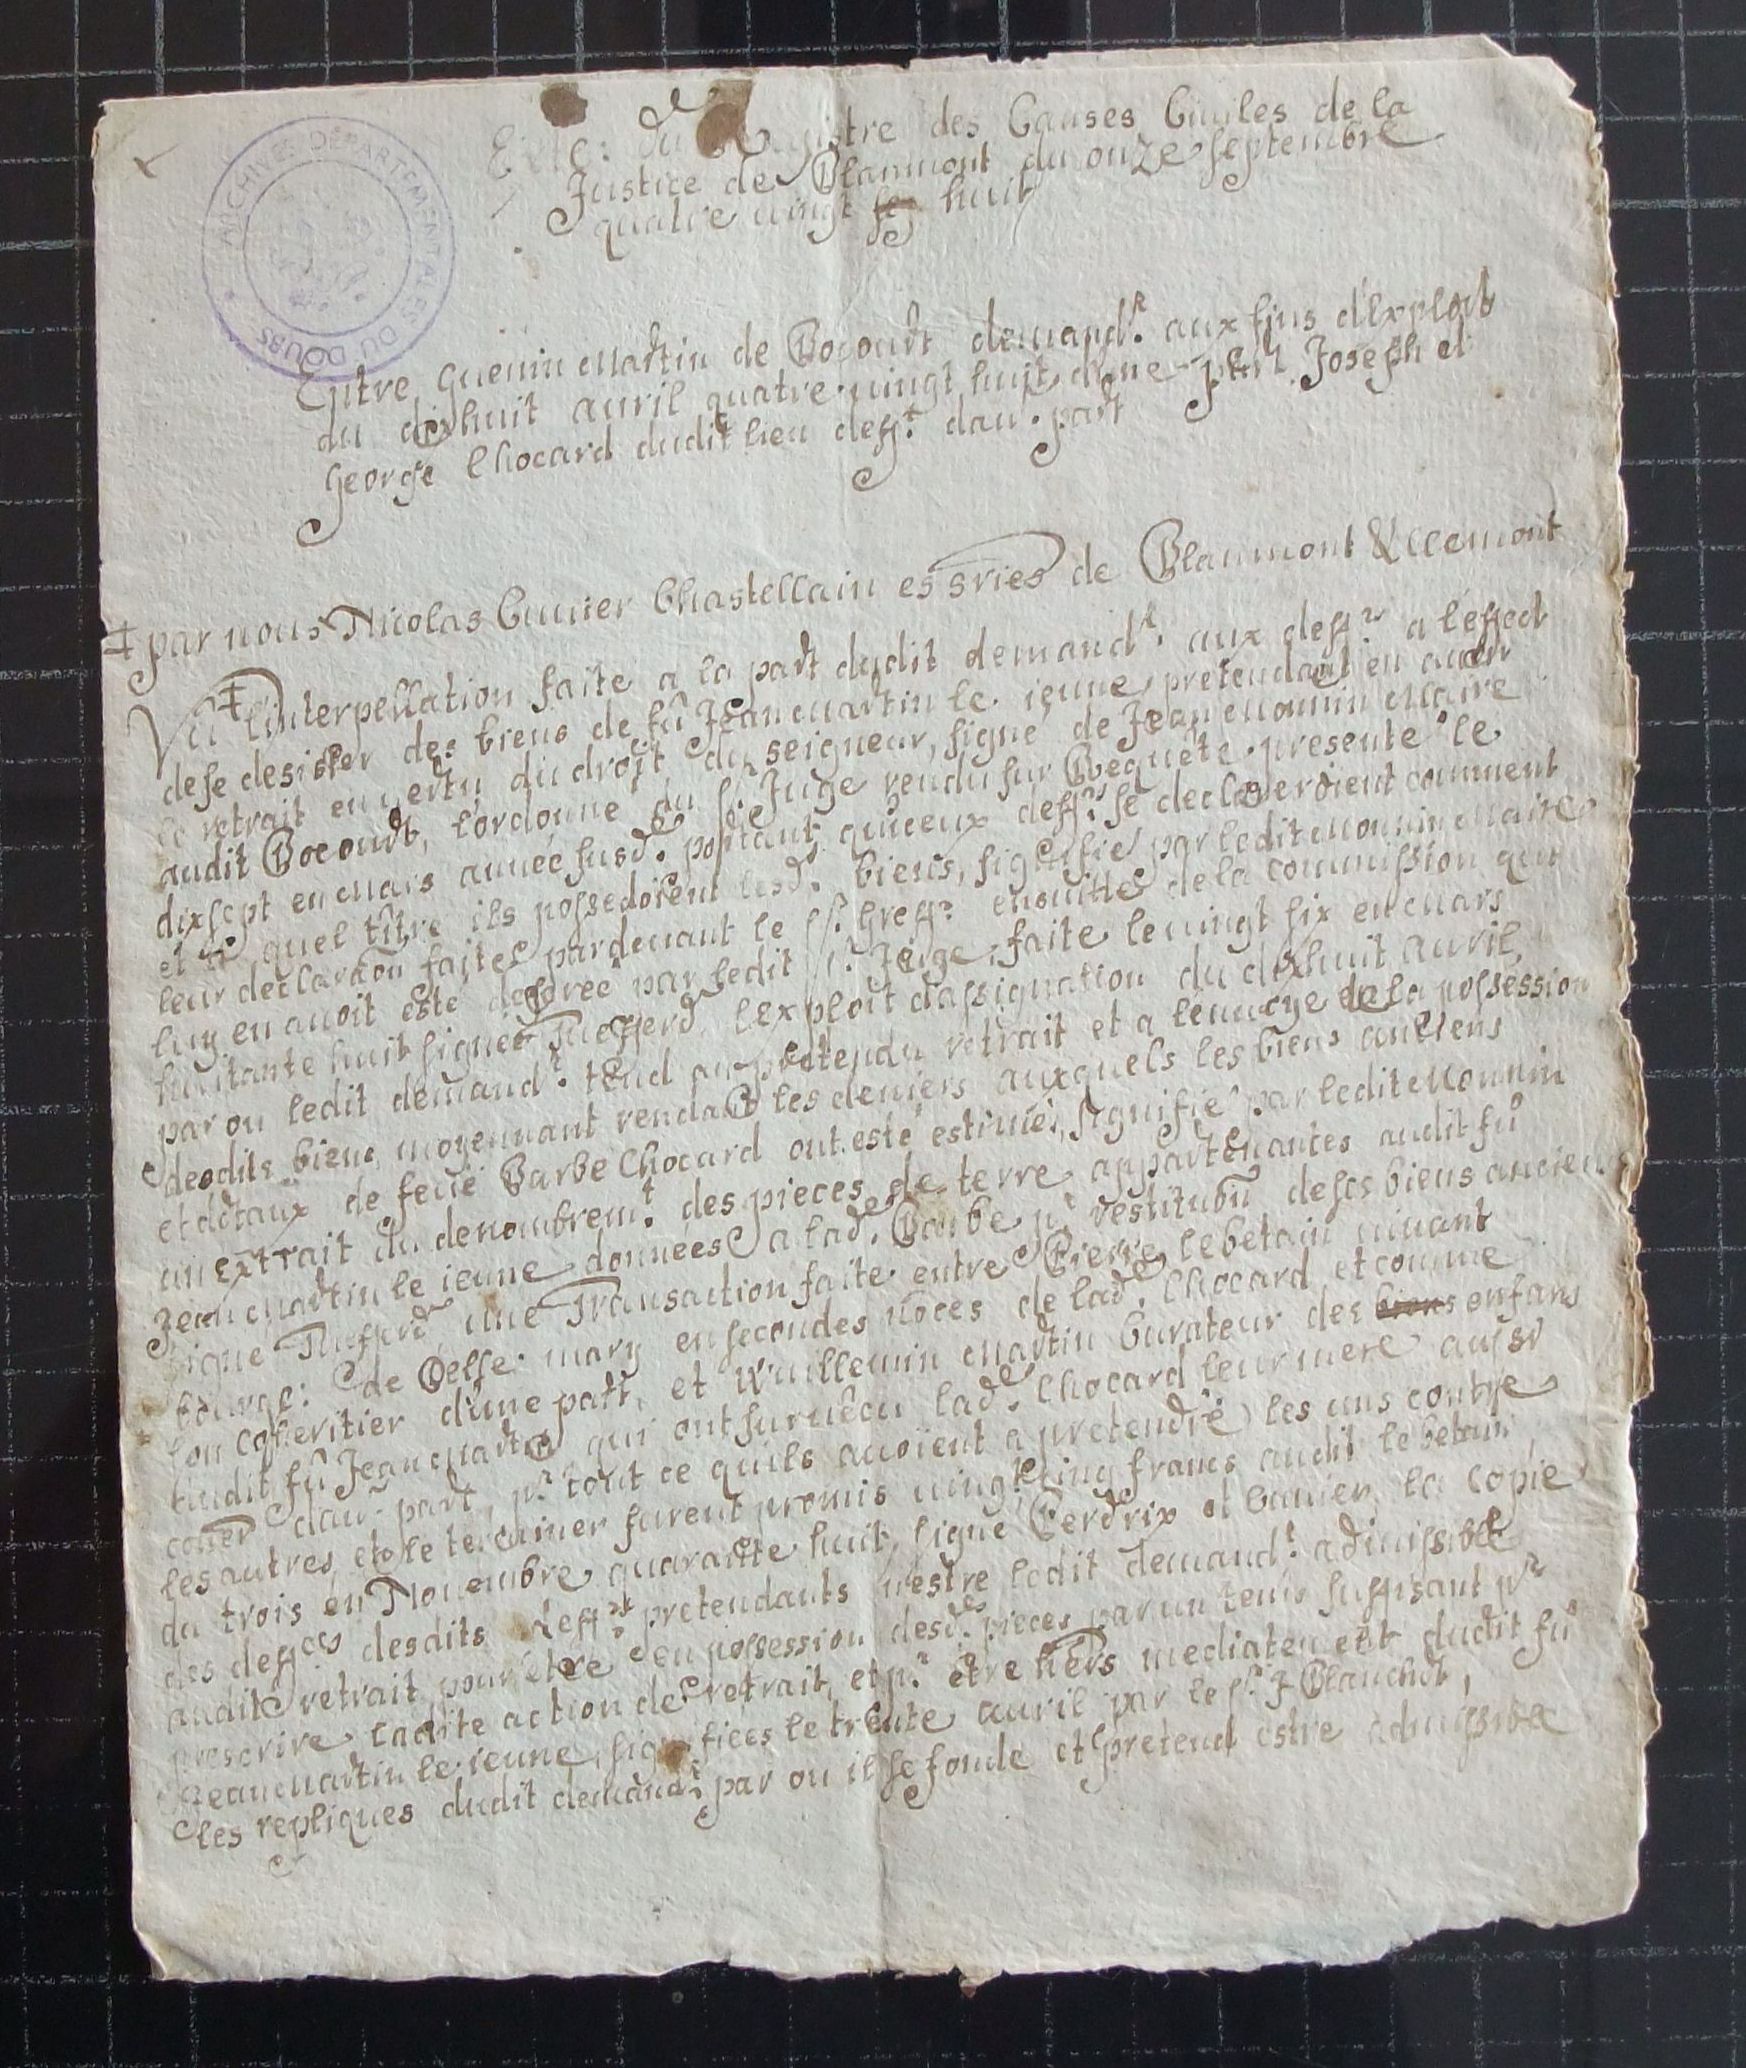 ARCHIVES DÉPARTEMENTALES DU DOUBS
du Registre des Causes Ciuiles de la
Justice de Blanmont du onze septembre
quatre uingt huit
Entre Guenin Martin de Rocourt demandr. aux fins d'exploit
du dixhuit auril quatre uingt huit dune part Joseph et
George Chocard dudit lieu deffr. dau. part
‡ par nous Nicolas Cuuier Chastellain es sries de Blanmont & Clemont
Vu ‡ l'interpellation faite a la part dudit demandr. aux deffrs a l'effect
de se desister des biens de fû Jean Martin le ieune, pretendant en auoir
le retrait en uertu du droit du seigneur, signé de Jean Monnin Maire
audit Rocourt, l'ordonne du sr. Juge rendu sur Requête presenté le
dixsept en Mars année susde. portant qu'iceux deffrs. se declareroient comment
et a quel titre ils possedoient lesds. biens, signifié par ledit Monnin Maire
leur declaraon faite pardeuant le sr. Greffr. ensuitte de la commission qui
luy en auoit esté par ledit sr. Juge, faite le uingt six en Mars
huitante huit signée l'exploit d'assignation du dixhuit auril,
par ou ledit demandr. tend au pretendu retrait et a l'enuoye de la possession
desdits biens moyennant rendant les deniers auxquels les biens anciens
et dotaux de feüe Barbe Chocard ont esté estimés, signifié par ledit Monnin
un extrait du denombremt. des pieces de terre appartenantes audit fû
Jean Martin le ieune données a lade. Barbe pr. restituon de ses biens anciens
signé une Transaction faite entre Pierre lebetain uiuant
de mary en secondes nôces de lade. Chocard et comme
son coheritier d'une part, et Wuillemin Martin Curateur des biens enfans
dudit fû Jean Martin qui ont suruêcu lade. Chocard leur mere aussi
dau. part, pr. tout ce quils auoient a pretendre les uns contre
les autres, et furent promis uingt cinq francs audit lebetain
du trois en Nouembre quarante huit, signé Perdrix et Cuuier, la copie
des deffces desdits deffrs. pretendants n'estre ledit demandr. admissible
audit retrait pour être en possession desdes. pieces par un tems suffisant pr.
prescrire ladite action de retrait, et pr. être hers mediatement dudit fû
Jean Martin le ieune, signifiées le trente auril par le sr. J Blanchot,
les repliques dudit demandr. par ou il se fonde et pretend estre admissible